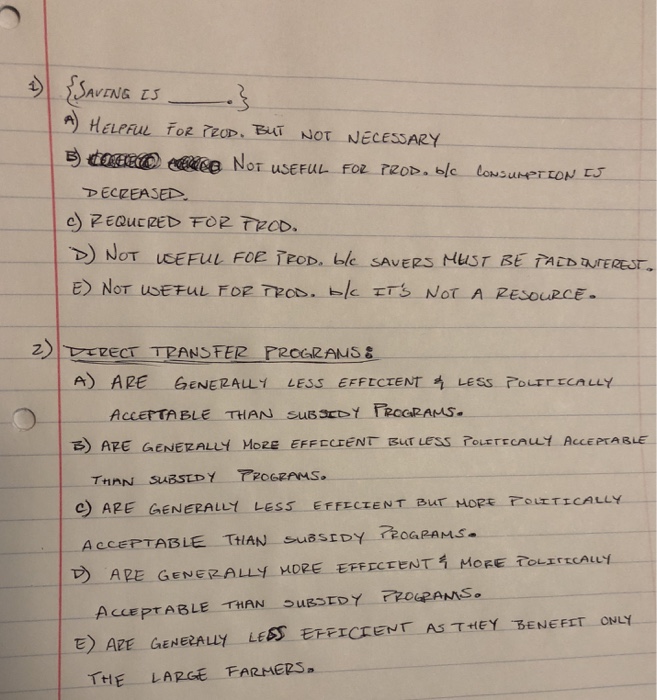 1) {SAVING IS ______.}
A) HELPFUL FOR PROD. BUT NOT NECESSARY
B) NOT USEFUL FOR PROD. b/c CONSUMPTION IS
DECREASED.
C) REQUIRED FOR PROD.
D) NOT USEFUL FOR PROD. b/c SAVERS MUST BE PAID INTEREST.
E) NOT USEFUL FOR PROD. b/c IT'S NOT A RESOURCE.
2) DIRECT TRANSFER PROGRAMS:
A) ARE GENERALLY LESS EFFICIENT & LESS POLITICALLY
ACCEPTABLE THAN SUBSIDY PROGRAMS.
B) ARE GENERALLY MORE EFFICIENT BUT LESS POLITICALLY ACCEPTABLE
THAN SUBSIDY PROGRAMS.
C) ARE GENERALLY LESS EFFICIENT BUT MORE POLITICALLY
ACCEPTABLE THAN SUBSIDY PROGRAMS.
D) ARE GENERALLY MORE EFFICIENT & MORE POLITICALLY
ACCEPTABLE THAN SUBSIDY PROGRAMS.
E) ARE GENERALLY LESS EFFICIENT AS THEY BENEFIT ONLY
THE LARGE FARMERS.